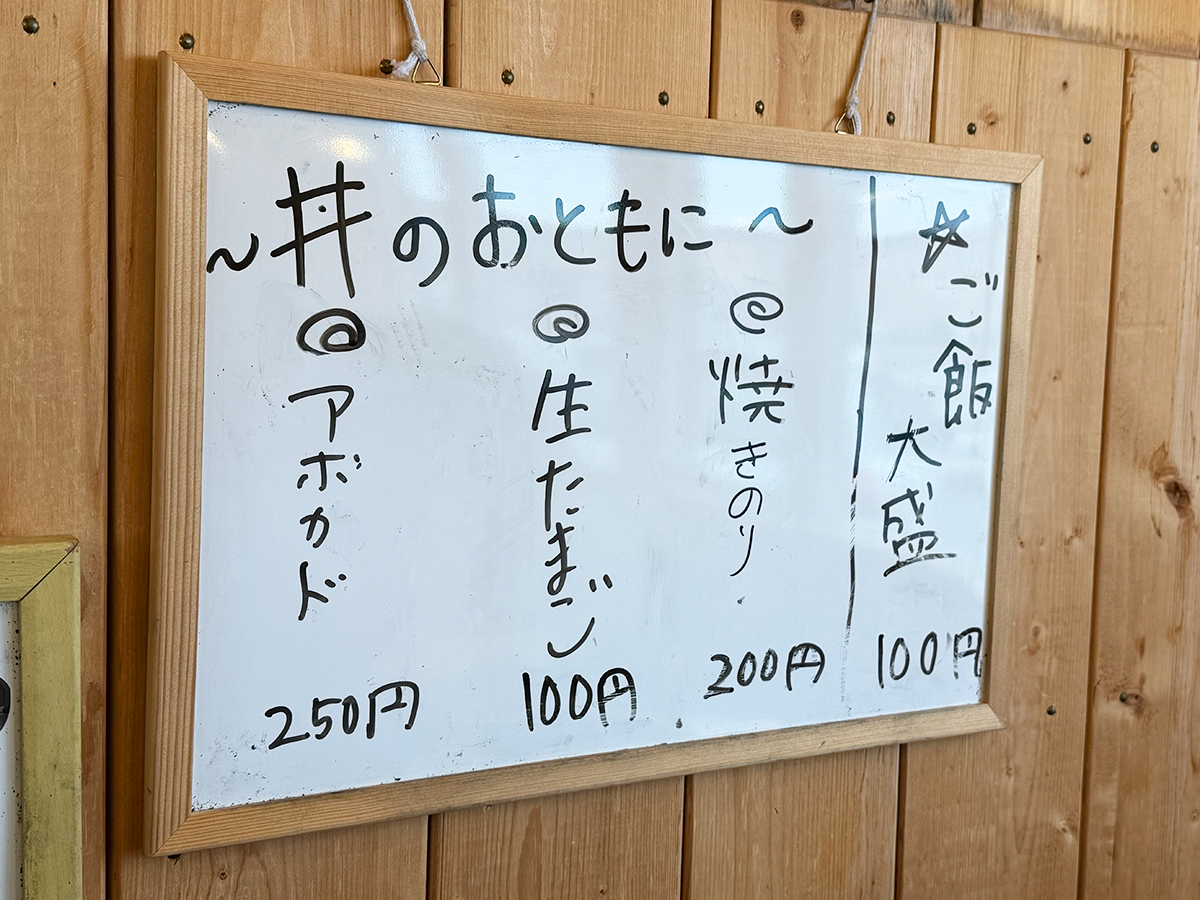 ~丼のおともに~
@アボカド
250円
@生たまご
100円
@焼きのり
200円
☆ご飯
大盛
100円